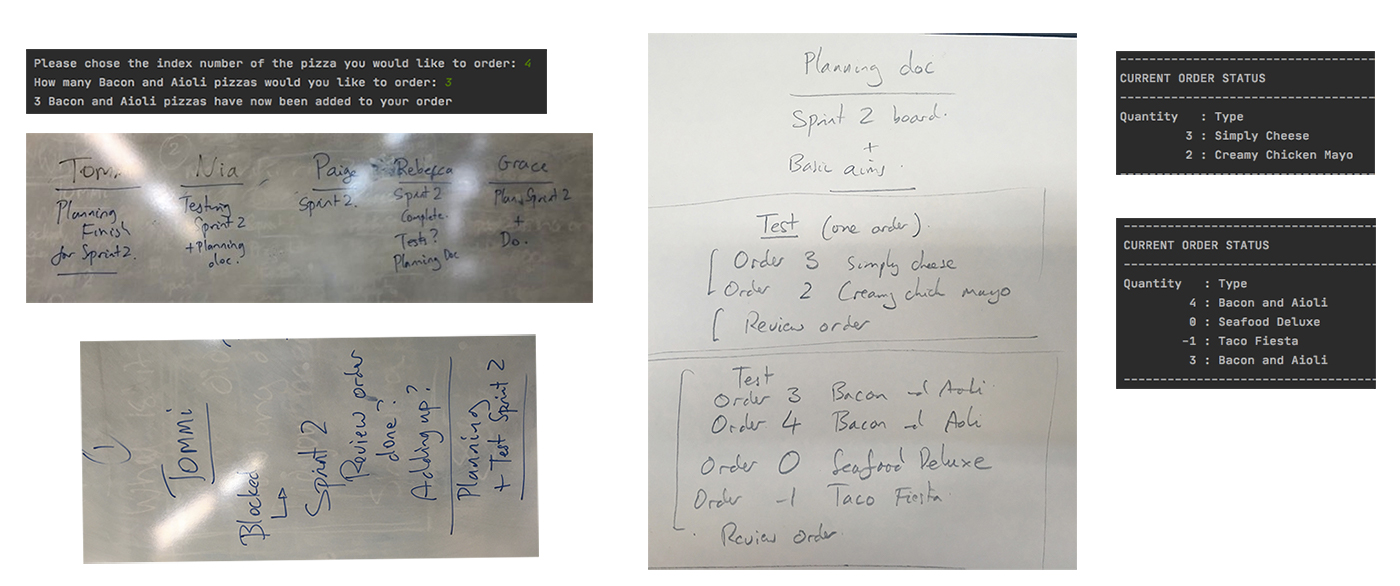 Please chose the index number of the pizza you would like to order: 4
How many Bacon and Aioli pizzas would you like to order: 3
3 Bacon and Aioli pizzas have now been added to your order
Tommi
Planning
Finish
for Sprint 2.
2
Nia
Testing
Sprint 2
+ Planning
doc.
Paige
Sprint 2.
Rebecca
Sprint 2
Complete.
Tests?
Planning Doc
Grace
Plan Sprint 2
+
Do.
1
Tommi
Blocked
Sprint 2
Review order
done?
Adding up?
Planning
+ Test Sprint 2
Planning doc
Sprint 2 board.
+
Basic aims.
Test (one order).
Order 3 Simply cheese
Order 2 Creamy chick mayo
Review order
Test
Order 3 Bacon Aoli
Order 4 Bacon Aoli
Order 0 Seafood Deluxe
Order -1 Taco Fiesta
Review order
CURRENT ORDER STATUS
Quantity : Type
3 : Simply Cheese
2 : Creamy Chicken Mayo
CURRENT ORDER STATUS
Quantity : Type
4 : Bacon and Aioli
0 : Seafood Deluxe
-1 : Taco Fiesta
3 : Bacon and Aioli